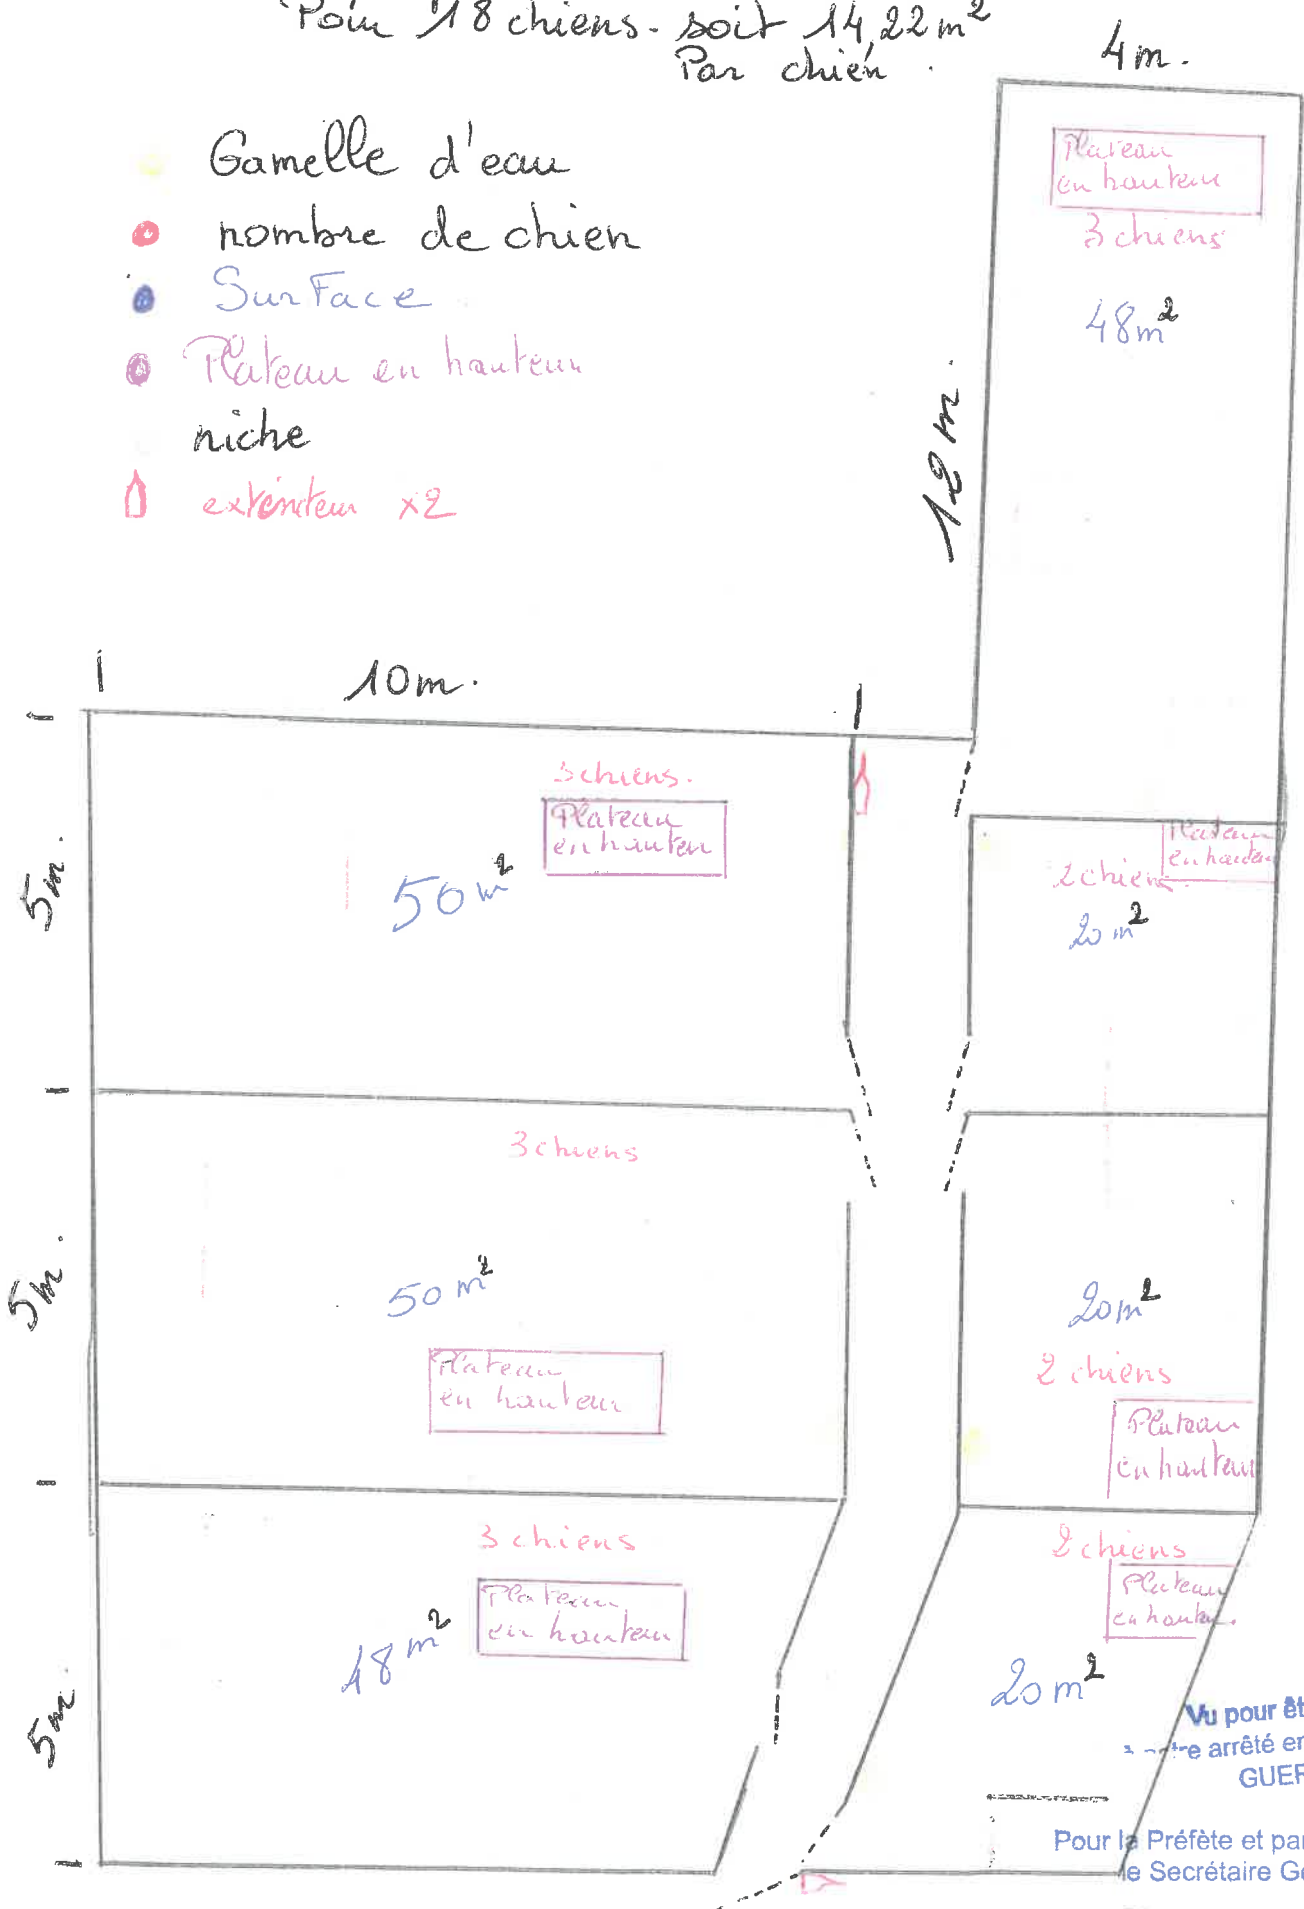 Pour 18 chiens - soit 14,22 m²
Par chien.
4m.
Gamelle d'eau
nombre de chien
Surface
Plateau en hauteur
niche
exteincteur x2
Plateau
en hauteur
3 chiens
48m²
12 m.
10m.
5m.
3 chiens.
Plateau
en hauteur
50 m²
Plateau
en hauteur
2 chiens.
20 m²
5m.
3 chiens
50 m²
Plateau
en hauteur
20m²
2 chiens
Plateau
en hauteur
5m.
3 chiens
Plateau
en hauteur
48 m²
2 chiens
Plateau
en hauteur.
20 m²
Vu pour êt
arrêté en
GUER
Pour la Préfète et par
le Secrétaire Gé